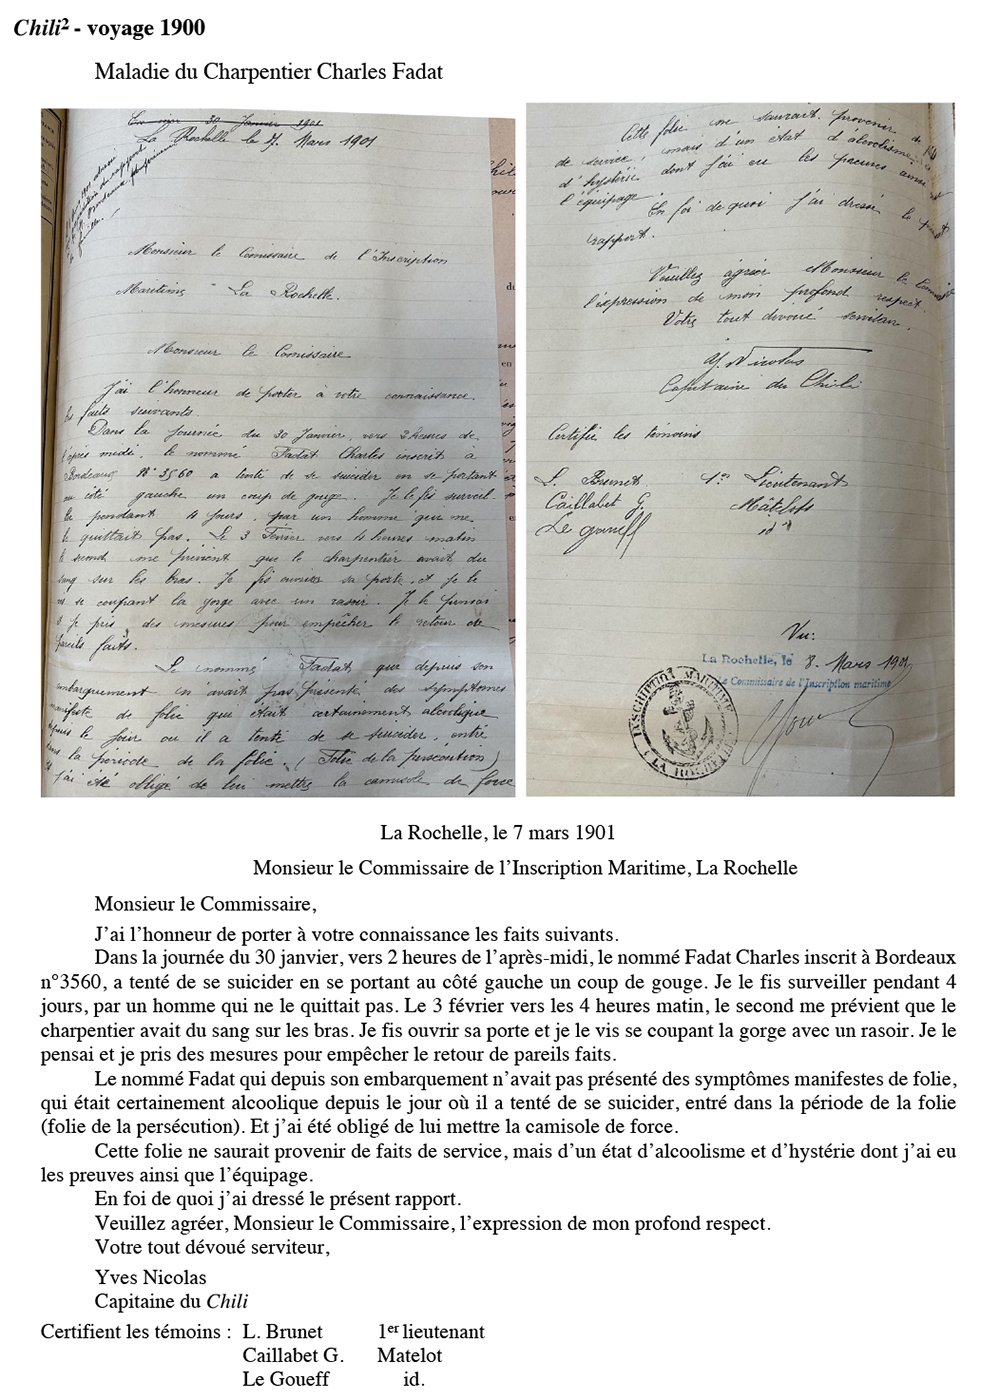 Chili² - voyage 1900
Maladie du Charpentier Charles Fadat
En mer 30 Janvier 1901
La Rochelle le 7 Mars 1901
Monsieur le Comissaire de l'Inscription
Maritime La Rochelle.
Monsieur le Comissaire
J'ai l'honneur de porter à votre connaissance
les faits suivants.
Dans la journée du 30 Janvier, vers 2 heures de
l'après midi, le nommé Fadat Charles inscrit à
Bordeaux N° 3560 a tenté de se suicider en se portant
au côté gauche un coup de gouge. Je le fis surveil-
ler pendant 4 jours, par un homme qui ne
le quittait pas. Le 3 Février vers 4 heures matin
le second me prévient que le charpentier avait du
sang sur les bras. Je fis ouvrir sa porte, et je le
vis se coupant la gorge avec un rasoir. Je le pensai
et je pris des mesures pour empêcher le retour de
pareils faits.
Le nommé Fadat, qui depuis son
embarquement n'avait pas présenté des symptômes
manifeste de folie qui était certainement alcoolique
depuis le jour ou il a tenté de se suicider, entré
dans la période de la folie. (Folie de la persécution)
Et j'ai été obligé de lui mettre la camisole de force
Cette folie ne saurait provenir de
de service, mais d'un état d'alcolisme
d'hystérie dont j'ai eu les preuves ainsi
l'équipage
En foi de quoi j'ai dressé le
rapport.
Veuillez agréer Monsieur le
l'expression de mon profond respect.
Votre tout dévoué serviteur.
Y. Nicolas
Capitaine du Chili
Certifie les témoins
L. Brunet 1er Lieutenant
Caillabet G. Mâtelots
Le Goueff id
Vu:
La Rochelle, le 8 Mars 1901
Le Commissaire de l'Inscription maritime
INSCRIPTION MARITIME
LA ROCHELLE
La Rochelle, le 7 mars 1901
Monsieur le Commissaire de l'Inscription Maritime, La Rochelle
Monsieur le Commissaire,
J'ai l'honneur de porter à votre connaissance les faits suivants.
Dans la journée du 30 janvier, vers 2 heures de l'après-midi, le nommé Fadat Charles inscrit à Bordeaux
n°3560, a tenté de se suicider en se portant au côté gauche un coup de gouge. Je le fis surveiller pendant 4
jours, par un homme qui ne le quittait pas. Le 3 février vers les 4 heures matin, le second me prévient que le
charpentier avait du sang sur les bras. Je fis ouvrir sa porte et je le vis se coupant la gorge avec un rasoir. Je le
pensai et je pris des mesures pour empêcher le retour de pareils faits.
Le nommé Fadat qui depuis son embarquement n'avait pas présenté des symptômes manifestes de folie,
qui était certainement alcoolique depuis le jour où il a tenté de se suicider, entré dans la période de la folie
(folie de la persécution). Et j'ai été obligé de lui mettre la camisole de force.
Cette folie ne saurait provenir de faits de service, mais d'un état d'alcoolisme et d'hystérie dont j'ai eu
les preuves ainsi que l'équipage.
En foi de quoi j'ai dressé le présent rapport.
Veuillez agréer, Monsieur le Commissaire, l'expression de mon profond respect.
Votre tout dévoué serviteur,
Yves Nicolas
Capitaine du Chili
Certifient les témoins : L. Brunet 1er lieutenant
Caillabet G. Matelot
Le Goueff id.